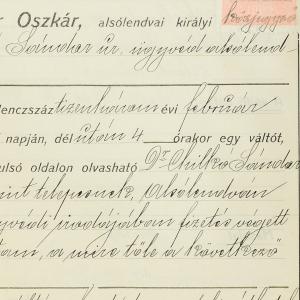 r Oszkár, alsólendvai királyi közjegyző
Sándor ur, ügyvéd alsólend-
lenczszáz tizenhárom évi február
napján, délután 4 órakor egy váltót,
ulsó oldalon olvasható Dr Chilko Sándor
int telepesnek, Alsólendván
yvédi irodájában fizetés végett
tam, a mire tőle a következő